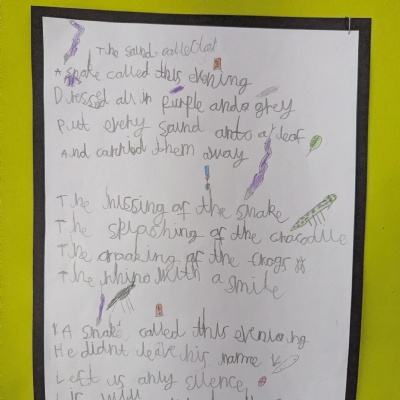 The sound collector
A snake called this evening
Dressed all in purple and a grey
Put every sound onto a leaf
And carried them away
The hissing of the snake
The splashing of the crocodile
The croaking of the frogs
The rhino with a smile
A snake called this evening
He didnt leave his name
Left us only silence